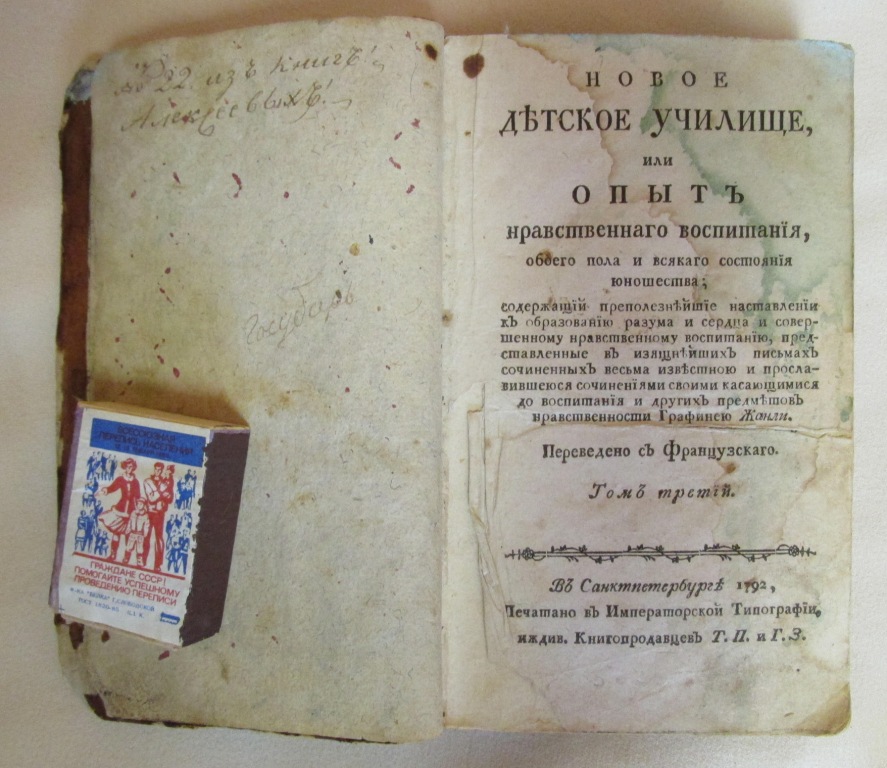 № 22 изъ книгъ!
Алексеевыхъ!
государь
ВСЕСОЮЗНАЯ
ПЕРЕПИСЬ НАСЕЛЕНИЯ
ГРАЖДАНЕ СССР!
ПОМОГАЙТЕ УСПЕШНОМУ
ПРОВЕДЕНИЮ ПЕРЕПИСИ
Г. СЛОБОДСКОЙ
ГОСТ 1820-85
НОВОЕ
ДѢТСКОЕ УЧИЛИЩЕ,
или
ОПЫТЪ
нравственнаго воспитанїя,
обоего пола и всякаго состоянїя
юношества;
содержащїй преполезнѣйшїе наставленїи
къ образованїю разума и сердца и совер-
шенному нравственному воспитанїю, пред-
ставленные въ изящнѣйшихъ письмахъ
сочиненныхъ весьма извѣстною и просла-
вившеюся сочиненїями своими касающимися
до воспитанїя и другихъ предметовъ
нравственности Графинею Жанли.
Переведено съ Французскаго.
Томъ третїй.
Въ Санктпетербургѣ 1792,
Печатано въ Императорской Типографїи,
иждив. Книгопродавцевъ Т. П. и Г. З.